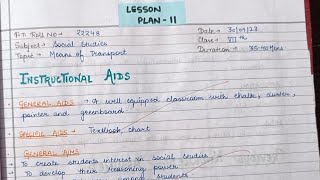 LESSON
PLAN - 11
P.T. Roll No → 22248
Date → 30/09/23
Subject → Social Studies
Class → VIIth
Topic → Means of Transport
Duration → 35-40 mins
INSTRUCTIONAL AIDS
GENERAL AIDS → A well equipped classroom with chalk, duster,
pointer and greenboard.
SPECIFIC AIDS → Textbook, chart
GENERAL AIMS
To create students interest in social studies
To develop their reasoning power
among students